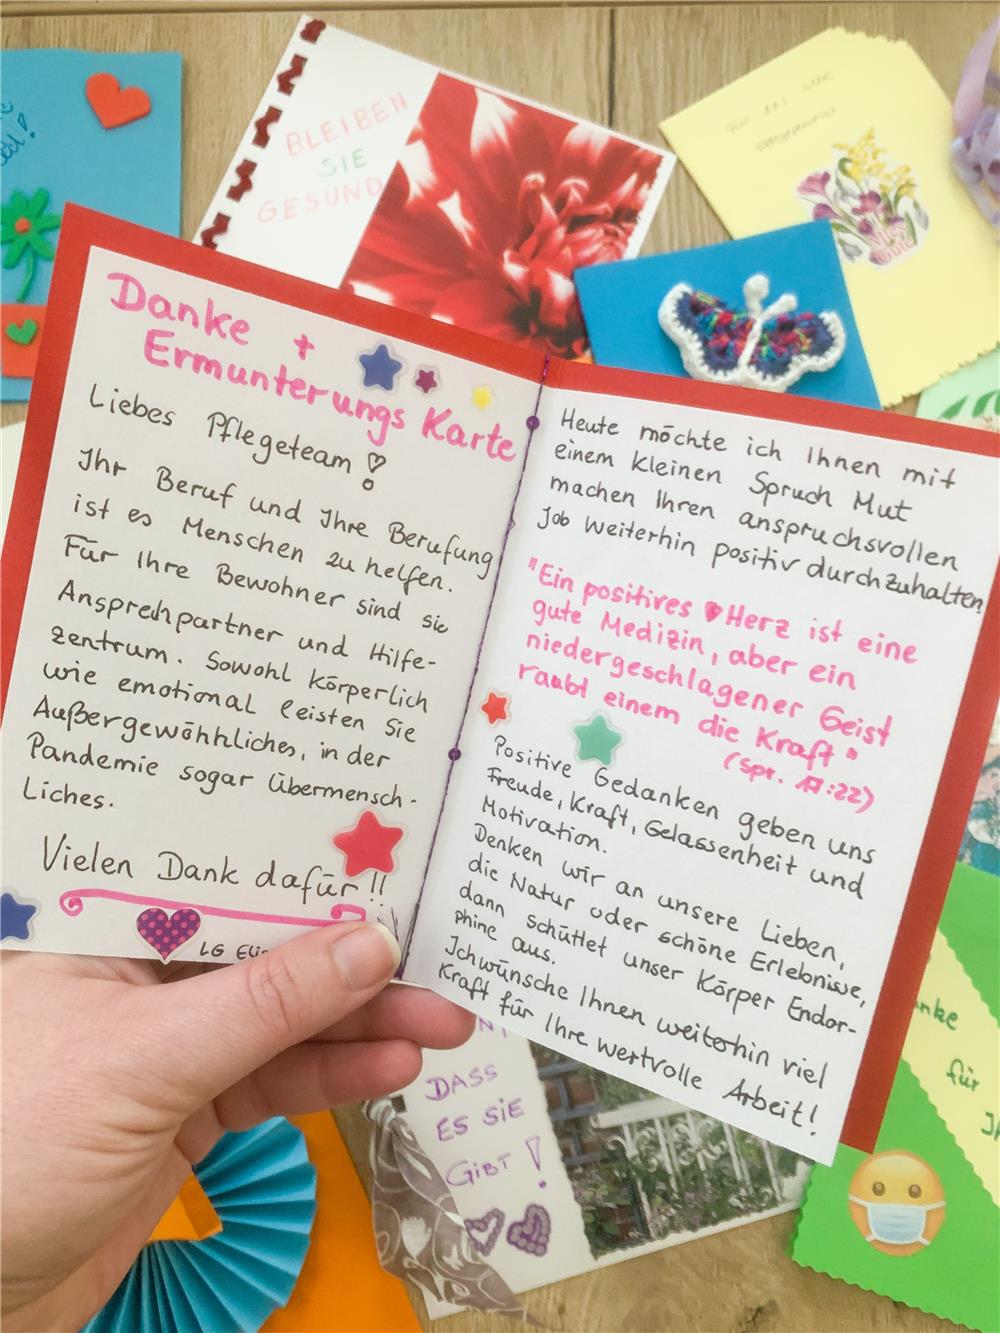 BLEIBEN
SIE
GESUND
Danke +
Ermunterungs Karte
Liebes Pflegeteam!
Ihr Beruf und Ihre Berufung
ist es Menschen zu helfen.
Für Ihre Bewohner sind sie
Ansprechpartner und Hilfe-
zentrum. Sowohl körperlich
wie emotional leisten Sie
Außergewöhnliches, in der
Pandemie sogar übermensch-
liches.
Vielen Dank dafür!!
LG
Heute möchte ich Ihnen mit
einem kleinen Spruch Mut
machen Ihren anspruchsvollen
Job weiterhin positiv durchzuhalten
"Ein positives Herz ist eine
gute Medizin, aber ein
niedergeschlagener Geist
raubt einem die Kraft"
(Spr. 17:22)
Positive Gedanken geben uns
Freude, Kraft, Gelassenheit und
Motivation.
Denken wir an unsere Lieben,
die Natur oder schöne Erlebnisse,
dann schüttet unser Körper Endor-
phine aus.
Ich wünsche Ihnen weiterhin viel
Kraft für Ihre wertvolle Arbeit!
DASS
ES SIE
GIBT!
für